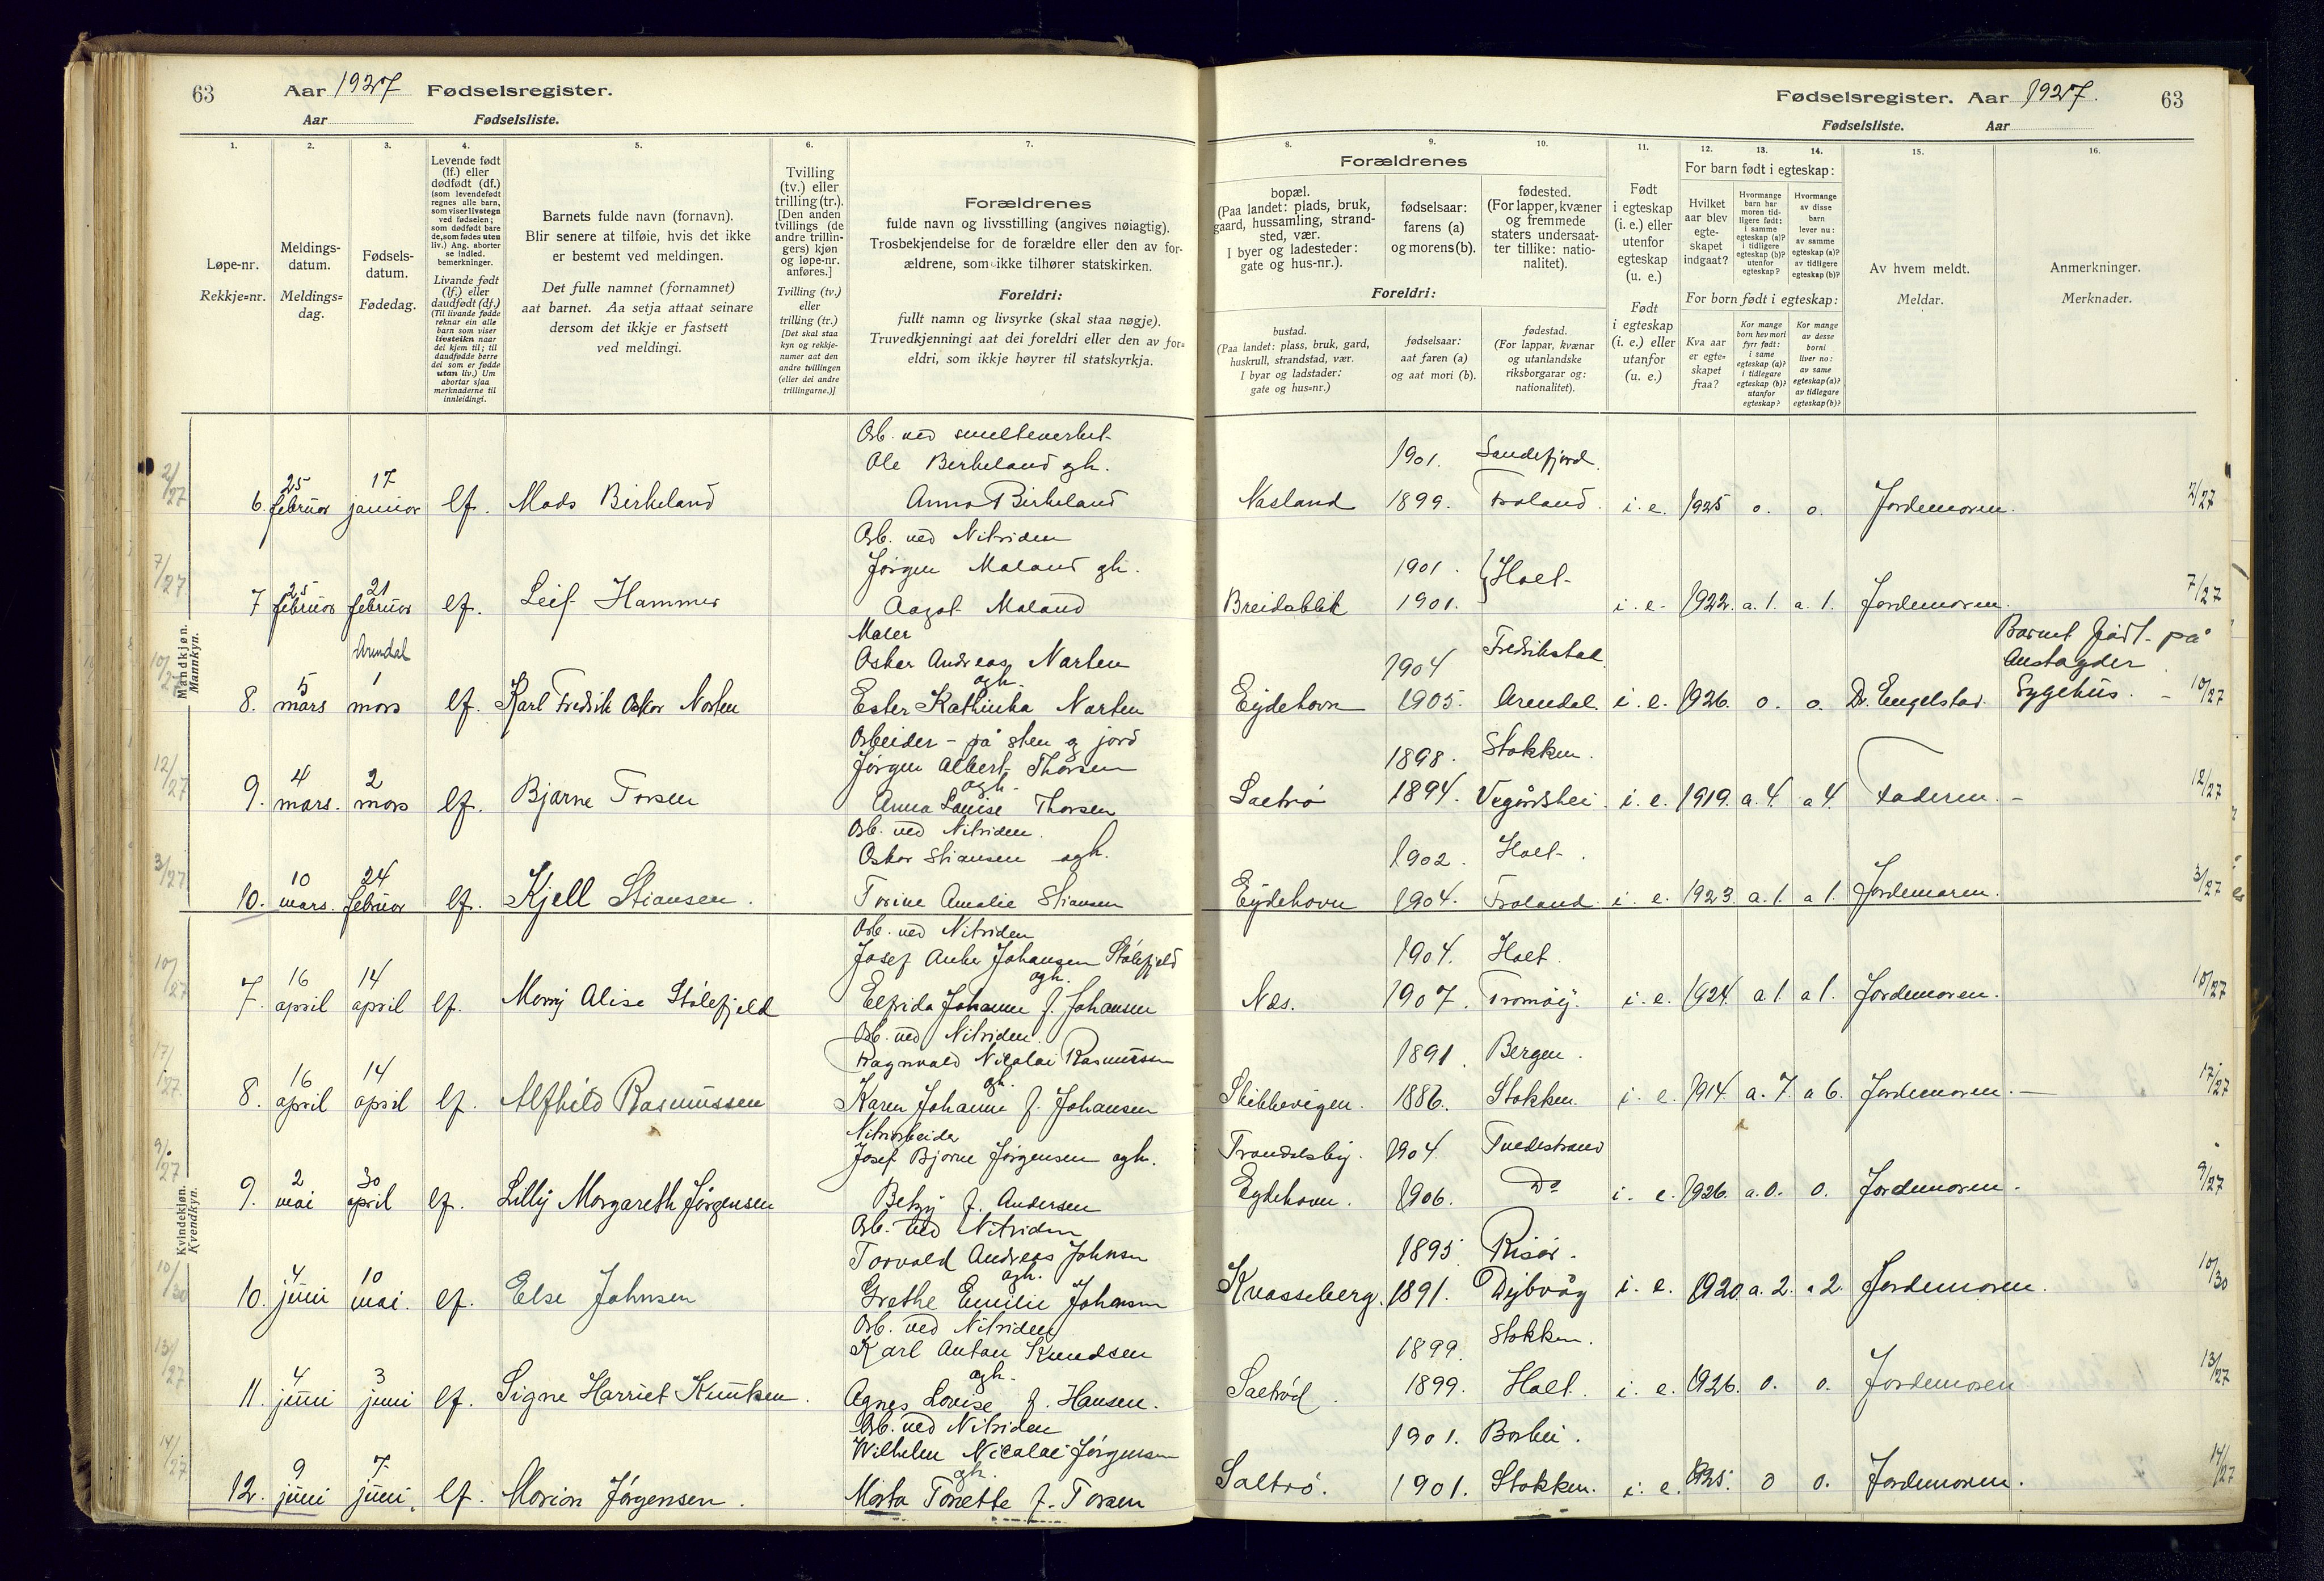 63 Aar 1927 Fødselsregister.
Aar Fødselsliste.
Fødselsregister. Aar 1927. 63
Fødselsliste. Aar
1. 2. 3. 4. 5. 6. 7.
8. 9. 10. 11. 12. 13. 14. 15. 16.
Løpe-nr.
Rekkje=nr.
Meldings-
datum.
Meldings=
dag.
Fødsels-
datum.
Fødedag.
Levende født
(lf.) eller
dødfødt (df.)
(som levendefødt
regnes alle barn,
som viser livstegn
ved fødselen;
som dødfødt bare
de, som fødes uten
liv.) Ang. aborter
se indled.
bemerkninger.
Livande født
(lf.) eller
daudfødt (df.)
(Til livande fødde
reknar ein alle
barn som viser
livsteikn naar
dei kjem til; til
daudfødde berre
dei som er fødde
utan liv.) Um
abortar sjaa
merknaderne til
innleidingi.
Barnets fulde navn (fornavn).
Blir senere at tilføie, hvis det ikke
er bestemt ved meldingen.
Det fulle namnet (fornamnet)
aat barnet. Aa setja attaat seinare
dersom det ikkje er fastsett
ved meldingi.
Tvilling
(tv.) eller
trilling (tr.).
[Den anden
tvillings (de
andre trillin-
gers) kjøn
og løpe-nr.
anføres.]
Tvilling (tv.)
eller
trilling (tr.)
[Det skal staa
kyn og rekkje-
numer aat den
andre tvillingen
(eller dei andre
trillingarne.)]
Forældrenes
fulde navn og livsstilling (angives nøiagtig).
Trosbekjendelse for de forældre eller den av for-
ældrene, som ikke tilhører statskirken.
Foreldri:
fullt namn og livsyrke (skal staa nøgje).
Truvedkjenningi aat dei foreldri eller den av for=
eldri, som ikkje høyrer til statskyrkja.
Forældrenes
bopæl.
(Paa landet: plads, bruk,
gaard, hussamling, strand-
sted, vær.
I byer og ladesteder:
gate og hus-nr.).
fødselsaar:
farens (a)
og morens (b).
fødested.
(For lapper, kvæner
og fremmede
staters undersaat-
ter tillike: natio-
nalitet).
Foreldri:
bustad.
(Paa landet: plass, bruk, gard,
huskrull, strandstad, vær.
I byar og ladstader:
gate og hus=nr.)
fødselsaar:
aat faren (a)
og aat mori (b).
fødestad.
(For lappar, kvænar
og utanlandske
riksborgarar og:
nationalitet).
Født
i egteskap
(i. e.) eller
utenfor
egteskap
(u. e.)
Født
i egteskap
(i. e.) eller
utanfor
(u. e.)
For barn født i egteskap:
Hvilket
aar blev
egte-
skapet
indgaat?
Hvormange
barn har
moren tid-
ligere født:
i samme
egteskap (a)?
i tidligere
egteskap (b)?
utenfor
egteskap?
Hvormange
av disse
barn
lever nu:
av samme
egteskap (a)?
av tidligere
egteskap (b)?
For born født i egteskap:
Kva aar
er egte-
skapet
fraa?
Kor mange
born hev mori
fyrr født:
i same
egteskap (a)?
i tidlegare
egteskap (b)?
utanfor
egteskap?
Kor mange
av desse
borni
liver no:
av same
egteskap (a)?
av tidlegare
egteskap (b)?
Av hvem meldt.
Meldar.
Anmerkninger.
Merknader.
Mandkjøn.
Mannkyn.
Arb. ved smelteverket
Ole Birkeland gh. 1901. Sandefjord.
2/27 6. 25 februar 17 januar lf. Mads Birkeland Anna Birkeland Nesland 1899. Froland. i. e. 1925 o. o. Jordemoren. 2/27
Arb. ved Nitriden
Jørgen Moland gh. 1901. Holt
7/27 7 25 februar 21 februar lf. Leif Hammer Aagot Moland Breidablik 1901. i. e. 1922. a. 1. a. 1. Jordemoren. 7/27
Arendal Maler Barnet født på
Oskar Andreas Narten 1904 Fredrikstad. Austagder
10/27 8. 5 mars 1 mars lf. Karl Fredrik Oskar Narten ogh. Ester Kathinka Narten Eydehavn 1905. Arendal. i. e. 1926. o. o. Dr. Engelstad. Sygehus. – 10/27
Arbeider – på sten og jord
Jørgen Albert Thorsen 1898. Stokken.
12/27 9. 4 mars. 2 mars lf. Bjarne Torsen ogh. Anna Louise Thorsen Saltrø 1894. Vegårdshei. i. e. 1919. a. 4. a 4. Faderen. – 12/27
Arb. ved Nitriden.
Oskar Stiansen ogh. 1902. Holt.
3/27 10. 10 mars. 24 februar lf. Kjell Stiansen. Torine Amalie Stiansen Eydehavn 1904. Froland. i. e. 1923. a. 1. a 1. Jordemoren. 3/27
Kvindekjøn.
Kvendkyn.
Arb. ved Nitriden
Josef Anker Johansen Stølefjeld 1904. Holt.
10/27 7. 16 april 14 april lf. Merry Alise Stølefjeld ogh. Elfrida Johanne f. Johansen Næs. 1907. Tromøy. i. e. 1924. a 1. a 1. Jordemoren. 10/27
Arb. ved Nitriden.
Ragnvald Nicolai Rasmussen 1891. Bergen.
17/27 8. 16 april 14 april lf. Alfhild Rasmussen gh. Karen Johanne f. Johansen Skibbevigen. 1886. Stokken. i. e. 1914. a. 7. a 6. Jordemoren. – 17/27
Nitridarbeider
Josef Bjarne Jørgensen ogh. Trondalsby. 1904 Tvedestrand
9/27 9. 2 mai 30 april lf. Lilly Margareth Jørgensen Betzy f. Andersen Eydehavn. 1906. Do i. e. 1926. a. o. o. Jordemoren. 9/27
Arb. ved Nitriden
Torvald Andreas Johnsen 1895 Risør.
10/30 10. 4 juni 10 mai. lf. Else Johnsen ogh. Grethe Emilie Johansen Knasseberg. 1891. Dybvåg i. e. 1920. a. 2. a 2. Jordemoren. 10/30
Arb. ved Nitriden
Karl Anton Knudsen 1899. Stokken.
13/27 11. 4 juni 3 juni lf. Signe Harriet Knutsen. ogh. Agnes Lovise f. Hansen. Saltrød. 1899. Holt. i. e. 1926. o. o. Jordemoren 13/27
Arb. ved Nitriden
Wilhelm Nicolai Jørgensen 1901. Barbu.
14/27 12. 9 juni 7. juni. lf. Marion Jørgensen. gh. Marta Tonette f. Torsen Saltrø. 1901. Stokken. i. e. 1925. o o. Jordemoren. 14/27